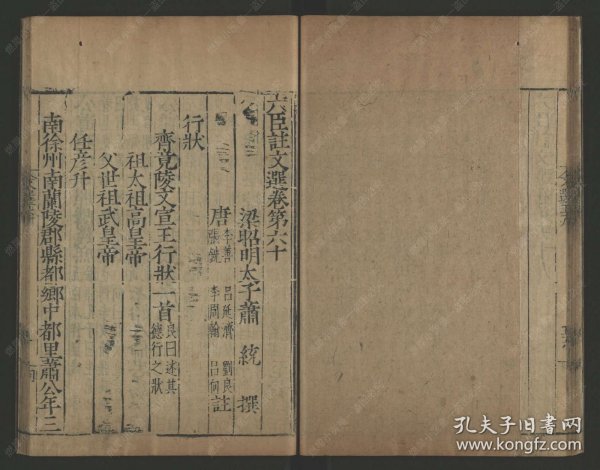 六臣註文選卷第六十
梁昭明太子蕭統撰
唐 李善 呂延濟 劉良 張銑 李周翰 呂向 註
行狀
齊竟陵文宣王行狀一首 良曰述其德行之狀
祖太祖高皇帝
父世祖武皇帝
任彥升
南徐州南蘭陵郡縣都鄉中都里蕭公年三
孔夫子旧书网
www.kongfz.com